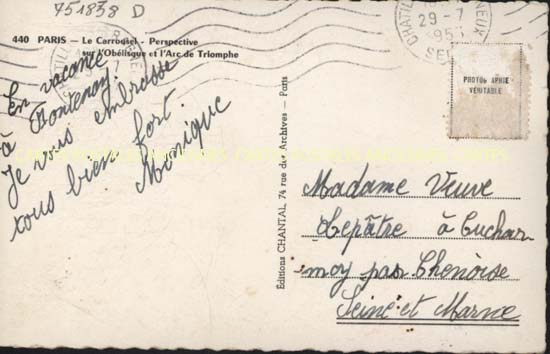 751838 D
440 PARIS – Le Carrousel - Perspective
sur l'Obélisque et l'Arc de Triomphe
En vacance
à Fontenay.
Je vous embrasse
tous bien fort.
Monique
Editions CHANTAL, 74 rue des Archives - Paris
29-7
PHOTOGRAPHIE
VÉRITABLE
Madame Veuve
Lepâtre à Cuchar
moy par Chenoise
Seine et Marne